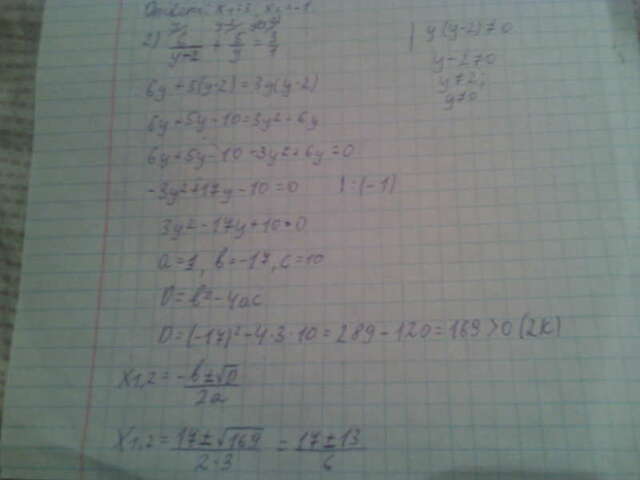 Ответ: x₁=3, x₂=-1
2) 6/(y-2) + 5/y = 3/1
y(y-2)≠0
y-2≠0
y≠2;
y≠0
6y+5(y-2)=3y(y-2)
6y+5y-10=3y²-6y
6y+5y-10-3y²+6y=0
-3y²+17y-10=0 |:(-1)
3y²-17y+10=0
a=1, b=-17, c=10
D=b²-4ac
D=(-17)²-4·3·10=289-120=169>0 (2К)
X₁,₂=(-b±√D)/2a
X₁,₂=(17±√169)/(2·3)=(17±13)/6